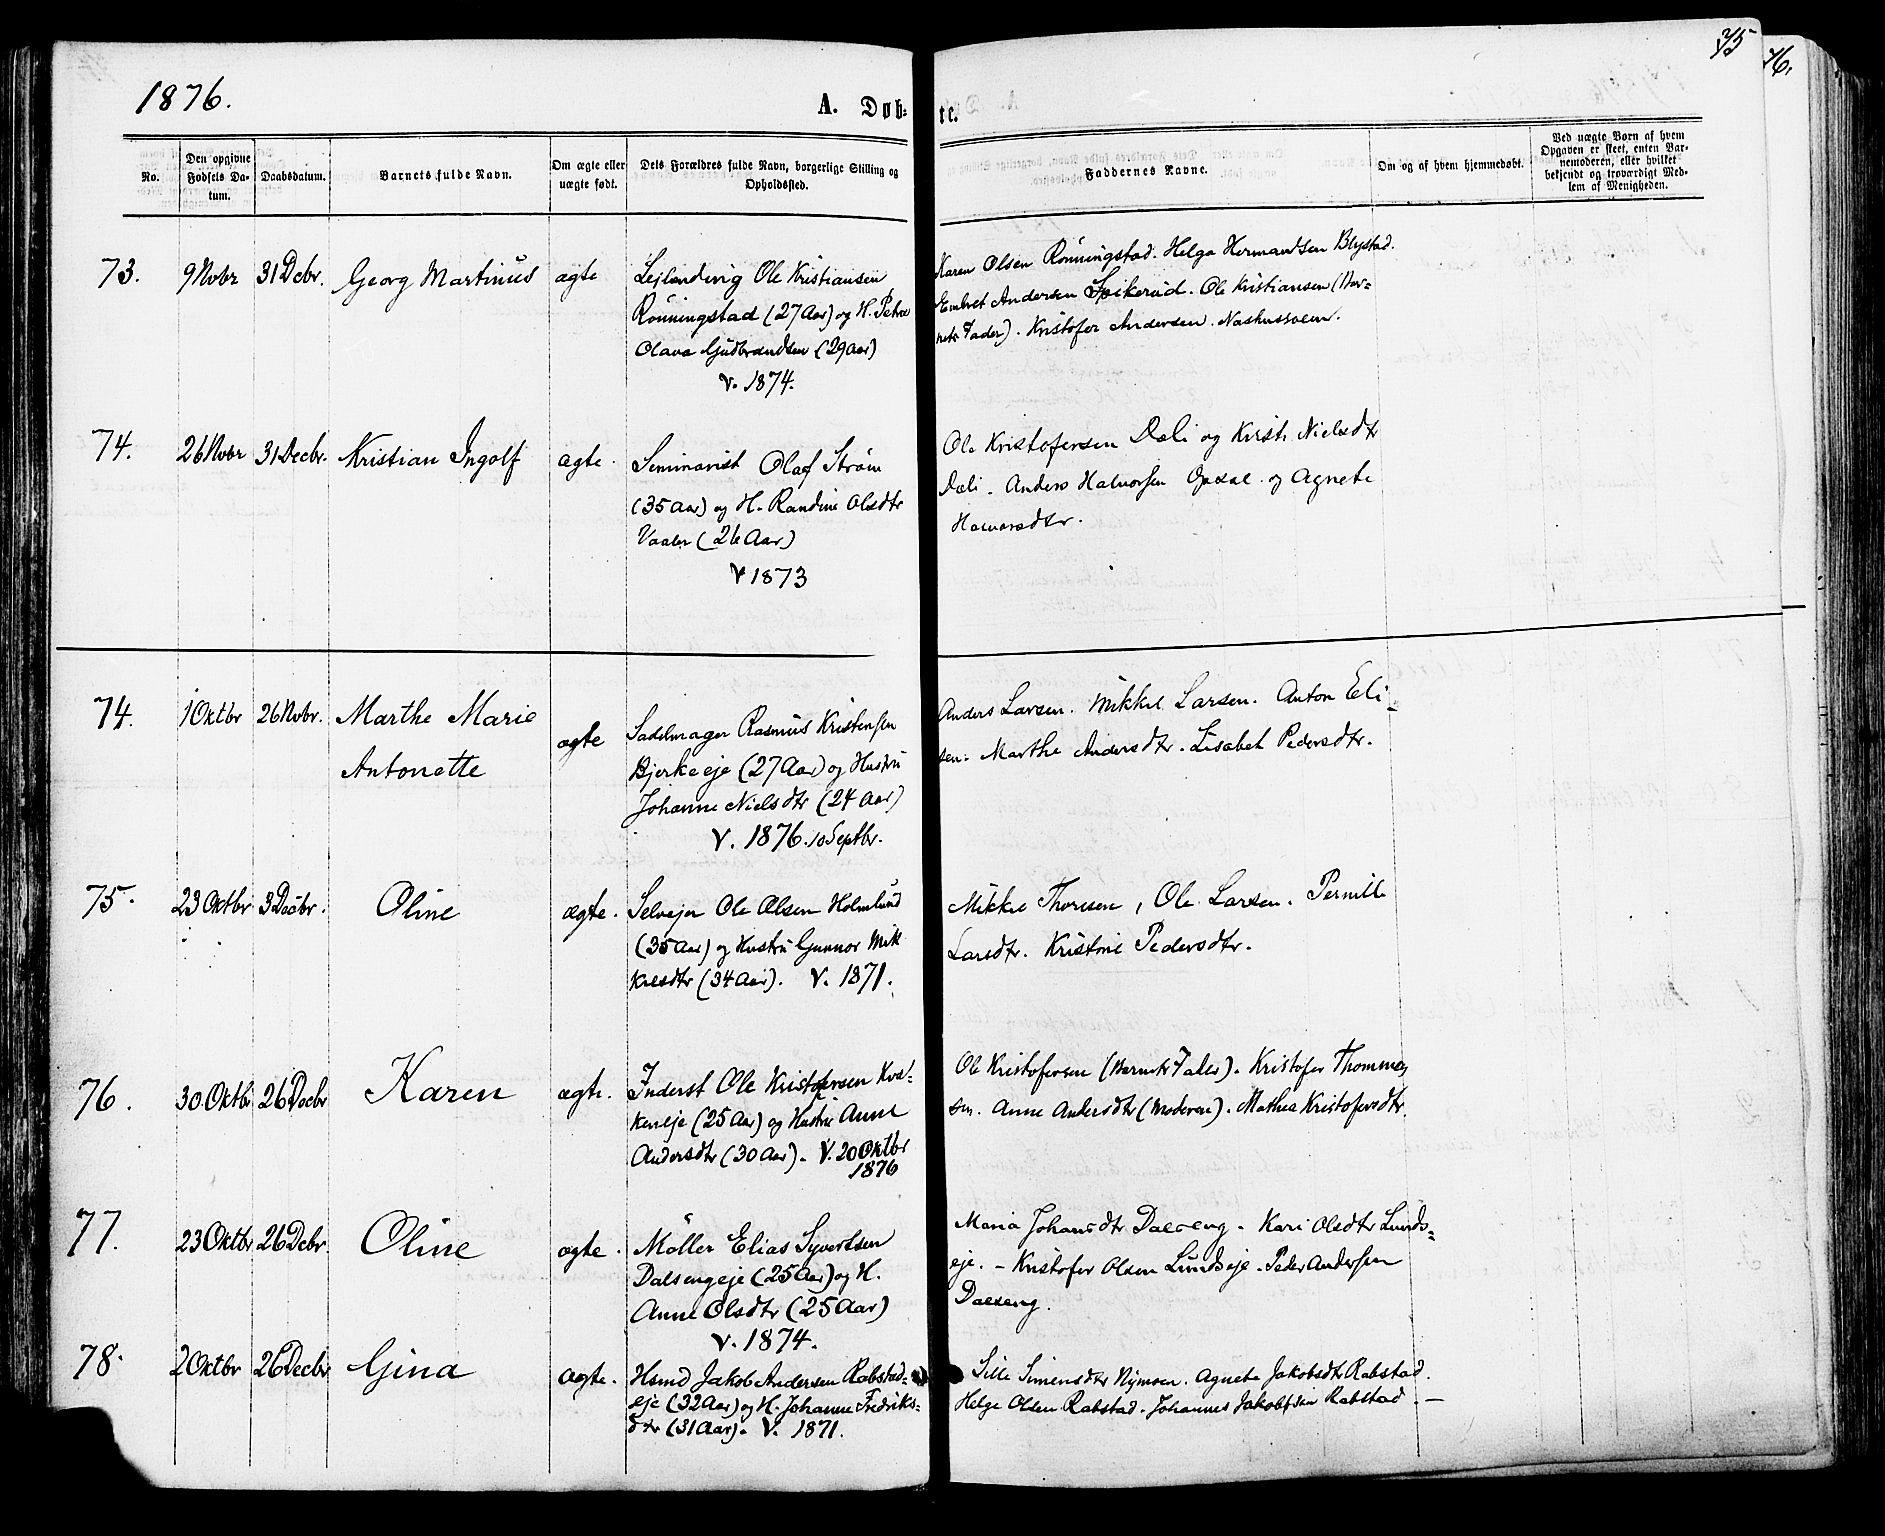 75
76.
1876.
A. Døb-
te.
No.
Den opgivne
Fødsels Da-
tum.
Daabsdatum.
Barnets fulde Navn.
Om ægte eller
uægte født.
Dets Forældres fulde Navn, borgerlige Stilling og
Opholdssted.
Faddernes Navne.
Om og af hvem hjemmedøbt.
Ved uægte Børn af hvem
Opgaven er skeet, enten Bar-
nemoderen, eller hvilket
bekjendt og troværdigt Med-
lem af Menigheden.
73.
9 Novbr
31 Dcbr.
Georg Martinus
ægte
Lejlending Ole Kristiansen
Rönningstad (27 Aar) og H. Petrea
Olava Gudbrandsen (29 Aar)
V. 1874.
Karen Olsen Rönningstad. Helga Hermandsen Blystad.
Embret Andersen Spikerud. Ole Kristiansen (Bar-
nets Fader). Kristofer Andersen
74.
26 Novbr
31 Decbr.
Kristian Ingolf
ægte.
Seminarist Olaf Ström
(35 Aar) og H. Randine Olsdtr
Vaaler (26 Aar)
V 1873
Ole Kristofersen Dæli og Kirsti Nielsdtr
Dæli. Anders Halvorsen Opsal og Agnete
Halvorsdtr.
74.
1 Oktbr
26 Novbr.
Marthe Marie
Antonette
ægte
Sadelmager Rasmus Kristensen
Bjerkeeje (27 Aar) og Hustru
Johanne Nielsdtr (24 Aar)
V. 1876. 10 Septbr.
Anders Larsen. Mikkel Larsen. Anton Eli-
sen. Marthe Andersdtr. Lisabet Pedersdtr.
75.
23 Oktbr
3 Decbr.
Oline
ægte.
Selvejer Ole Olsen Holmlund
(35 Aar) og Hustru Gunnor Mik
kelsdtr (34 Aar). V. 1871.
Mikkel Thoresen, Ole Larsen. Pernille
Larsdtr. Kristine Pedersdtr.
76.
30 Oktbr
26 Decbr
Karen
ægte.
Inderst Ole Kristofersen Kvæ-
keneje (25 Aar) og Hustru Anne
Andersdtr (30 Aar). V. 20 Oktbr
1876
Ole Kristofersen (Barnets Fader). Kristofer Thommes
sen. Anne Andersdtr (Moderen). Mathea Kristofersdtr.
77.
23 Oktbr
26 Dcbr.
Oline
ægte.
Möller Elias Syvertsen
Dalsengeje (25 Aar) og H.
Anne Olsdtr (25 Aar)
V. 1874.
Maria Johansdtr Dalseng. Kari Olsdtr Lunds-
eje. - Kristofer Olsen Lundseje. Peder Andersen
Dalseng.
78.
2 Oktbr
26 Decbr
Gina
ægte.
Hsmd Jakob Andersen Rabstad-
eje (32 Aar) og H. Johanne Fredriks-
dtr (31 Aar). V. 1871.
Sille Simensdtr Nymoen. Agnete Jakobsdtr Rabstad.
Helge Olsen Rabstad. Johannes Jakobsen Rabstad. -